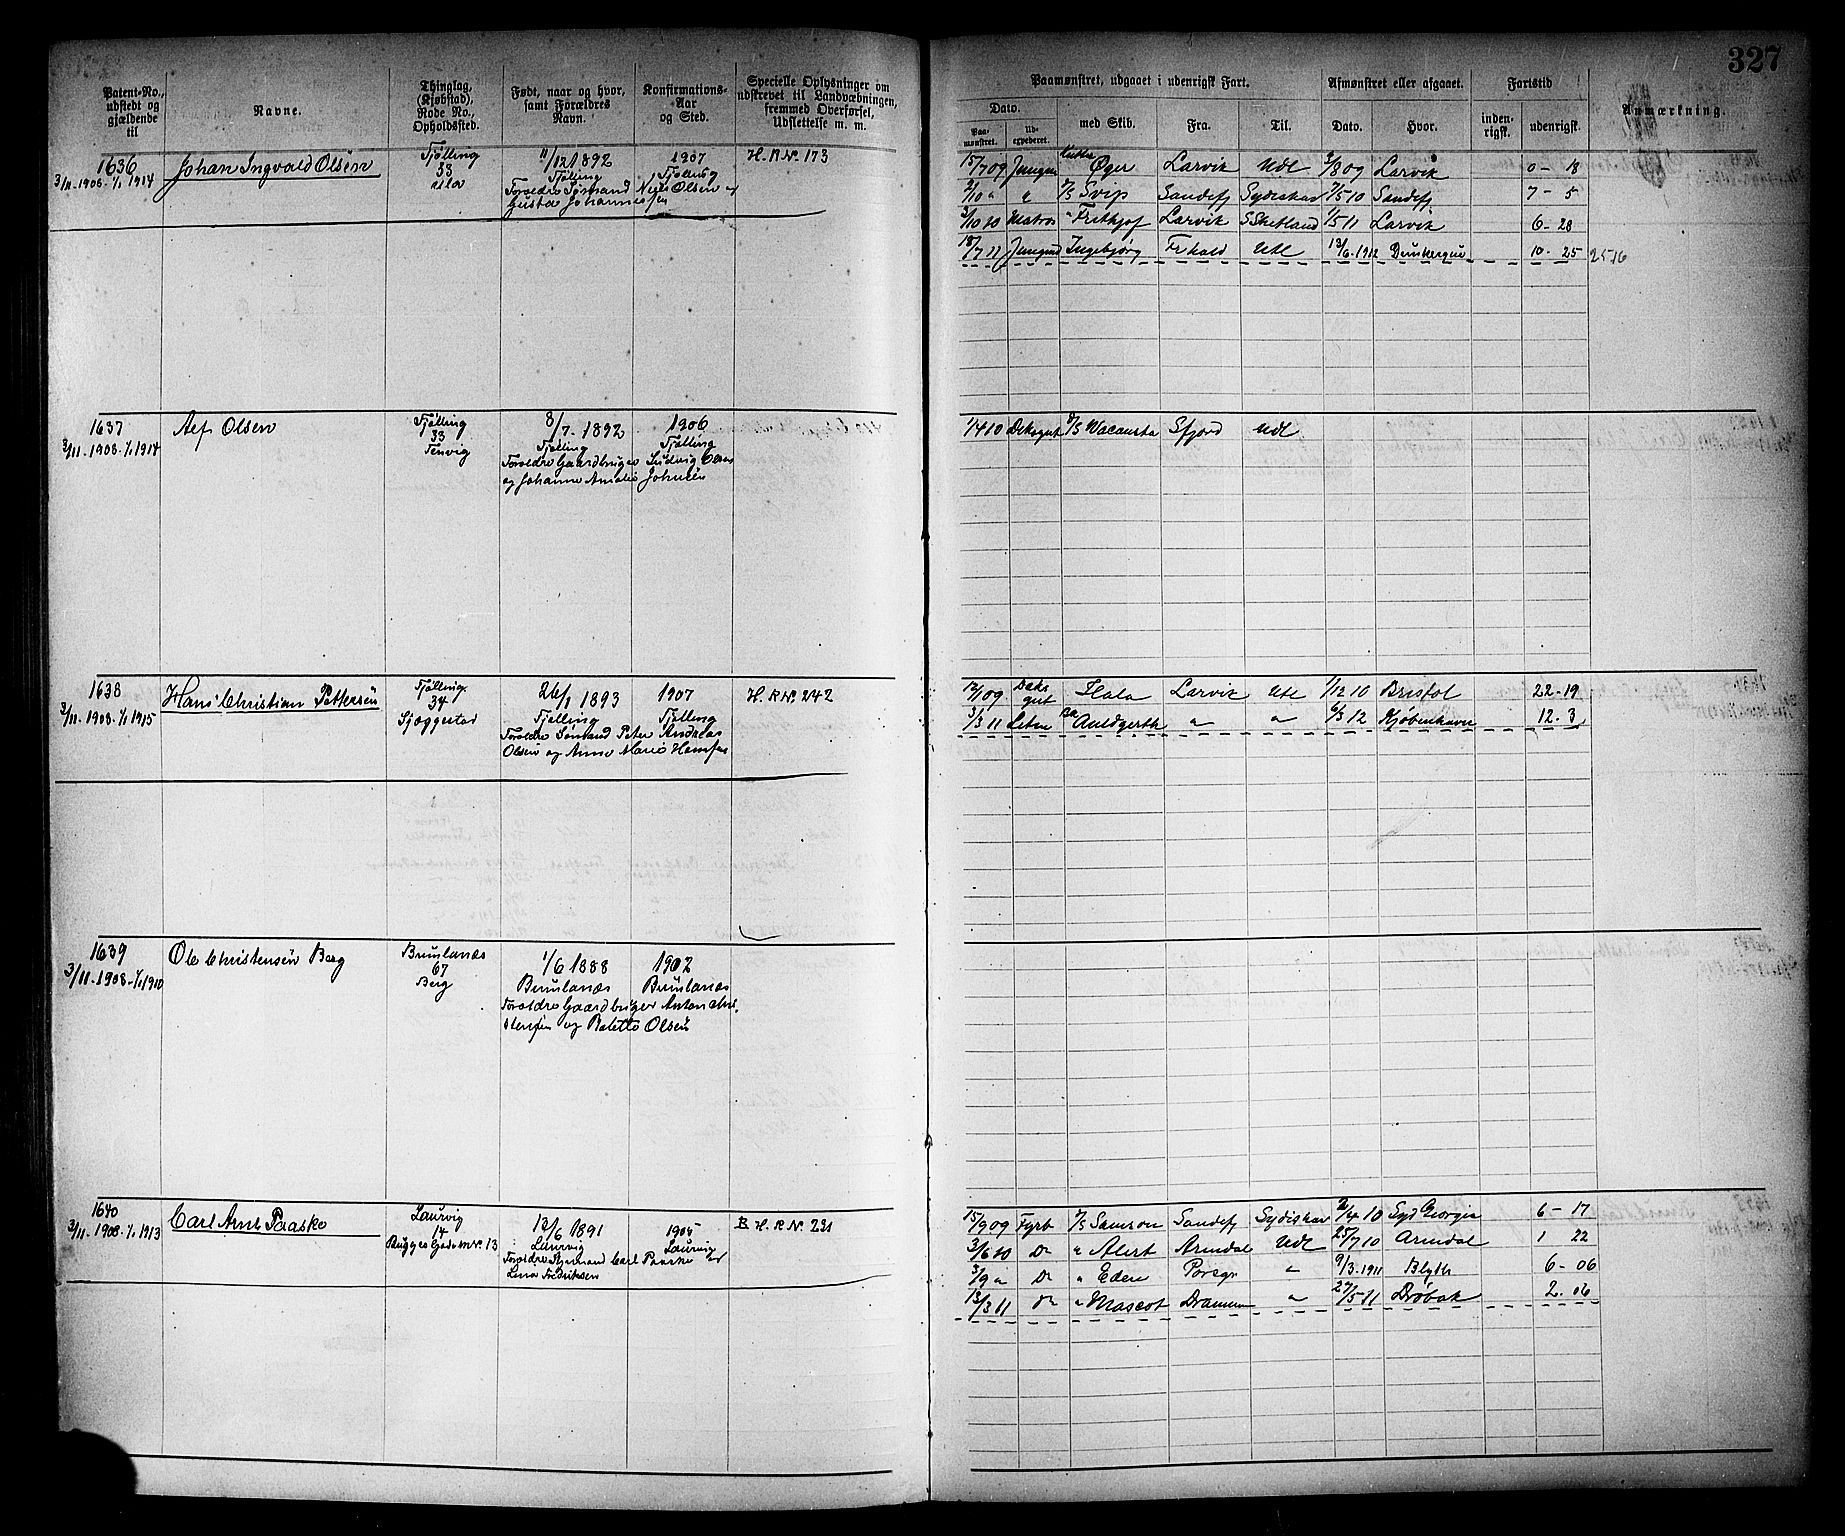 327
Patent-No., udstedt og gjældende til
Navne.
Thinglag, (Kjøbstad), Rode No., Opholdssted.
Født, naar og hvor, samt Forældres Navn.
Konfirmations- Aar og Sted.
Specielle Oplysninger om udskrevet til Landvæbningen, fremmed Overførsel, Udslettelse m. m.
Paamønstret, udgaaet i udenrigsk Fart.
Afmønstret eller afgaaet.
Fartstid
Anmærkning.
Dato.
Paa- mønstret.
Ud- expederet.
med Skib.
Fra.
Til.
Dato.
Hvor.
inden- rigsk.
udenrigsk.
1636
3/11-1908-1/1 1914
Johan Ingvald Olsen
Tjølling
33
Ula
11/12 1892
Tjølling
Forældre Sømand Niels Olsen og
Gusta Johannesen
1907
Tjølling
H. R No. 173
15/7 09 Jungm Kutter Øger Larvik Udl 3/8 09 Larvik 0-18
2/10 " " D/S Svip Sandefj Sydishav 7/5 10 Sandefj 7-5
3/10 10 Matros " Frithjof Larvik S Shetland 1/5 11 Larvik 6-28
18/7 11 Jungmd Ingebjørg Frhald Utl 13/6-1912 Dunkerque 10-25 2516
1637
3/11-1908-1/1 1914
Alf Olsen
Tjølling
33
Tenvig
8/7-1892
Tjølling
Forældre Gaardbruger Ludvig Olsen
og Johanne Amalie Johnsen
1906
Tjølling
1/4 10 Deksgut D/S Wacousta Sfjord Udl
1638
3/11-1908-1/1 1915
Hans Christian Pettersen
Tjølling
34
Sjæggestad
26/1 1893
Tjølling
Forældre Sømand Peter Andreas
Olsen og Anne Marie Hansen
1907
Tjølling
H. R No. 242
12/1 09 Deksgut Ilala Larvik Utl 1/12 10 Bristol 22-19
3/3 11 Letm Bk Auldgerth " " 6/3 12 Kjøbenhavn 12-3
1639
3/11-1908-1/1 1910
Ole Christensen Berg
Brunlanæs
67
Berg
1/6 1888
Brunlanæs
Forældre Gaardbruger Anton Chri-
stensen og Bolette Olsen
1902
Brunlanæs
1640
3/11-1908-1/1 1913
Carl Arnt Paaske
Laurvig
14
Bugges Gade No. 13
13/6 1891
Laurvig
Forældre Sømand Carl Paaske og
Lena Fredriksen
1905
Laurvig
B H. R No. 231
15/9 09 Fyrb D/S Samson Sandefj Sydishav 2/4 10 Syd Georgia 6-17
3/6 10 Do " Alert Arendal Udl 25/7 10 Arendal 1 22
3/9 " Do " Edera Porsgr " 9/3-1911 Blyth 6-06
13/3 11 Do " Mascot Drammen " 27/5 11 Drøbak 2-06